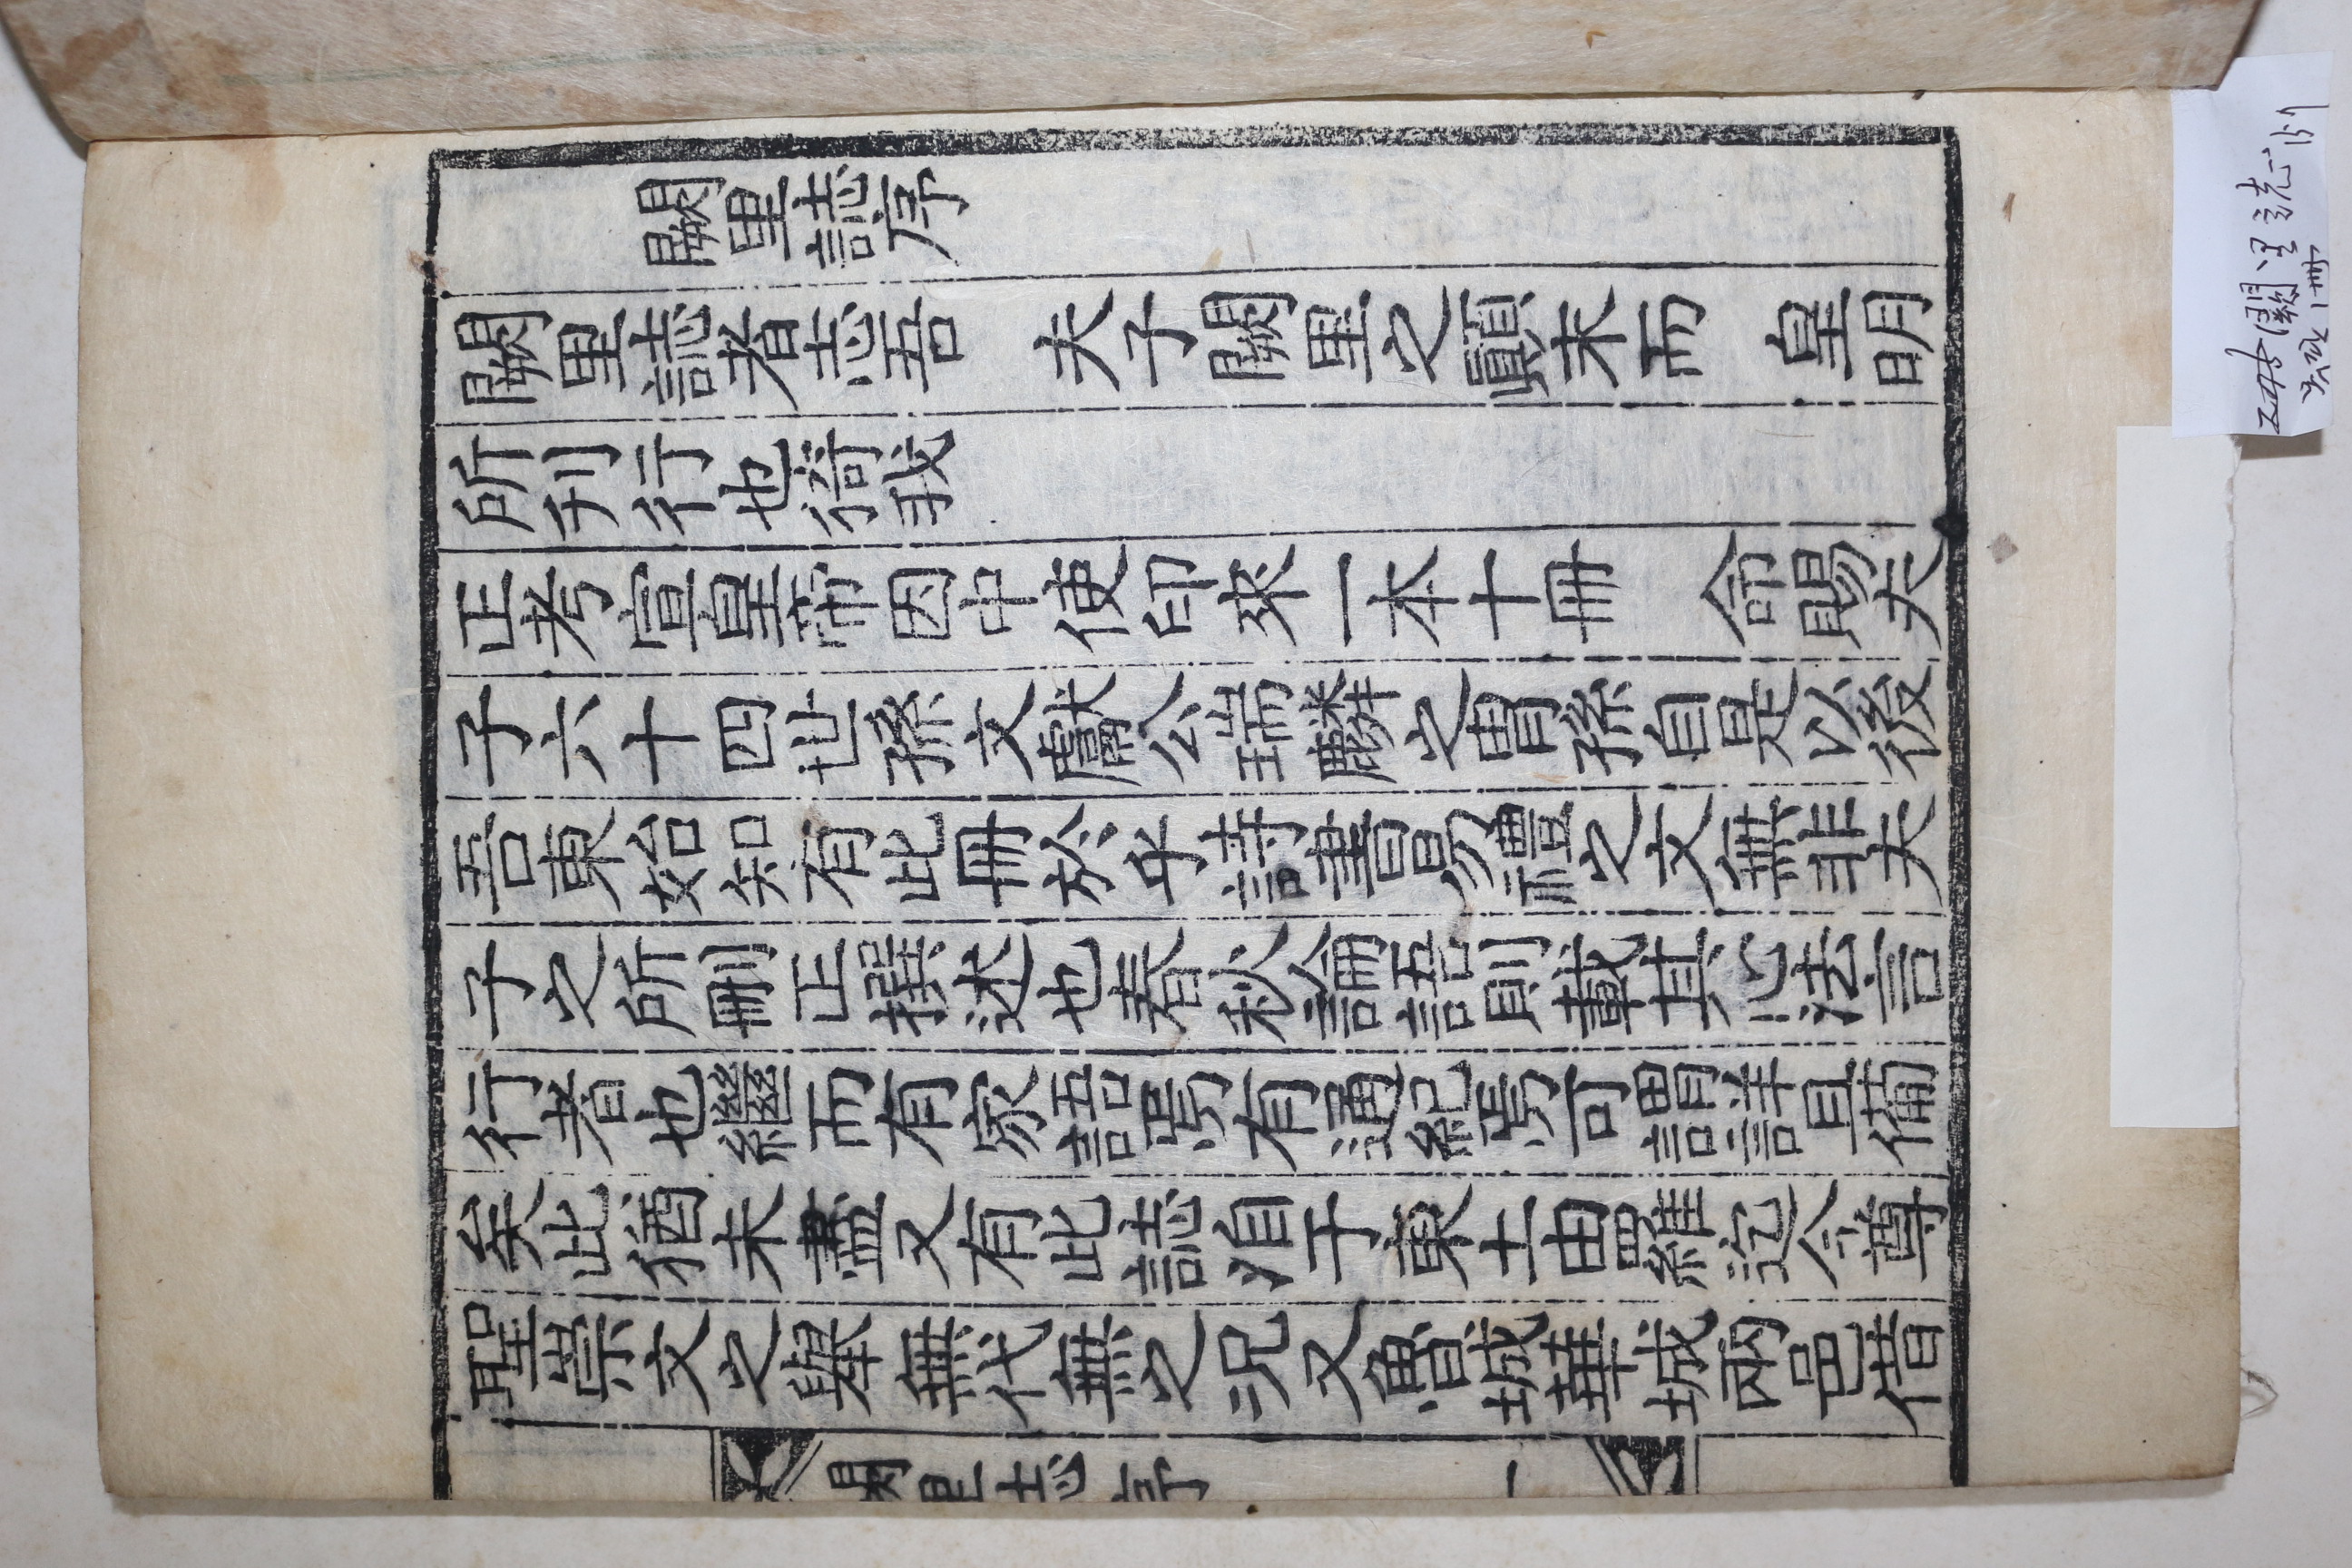 闕里誌序
闕里誌者志吾 夫子闕里之顚末而 皇明
所刋行也猗我
正考宣皇帝因中使印来一本十冊 命賜夫
子六十四世孫文獻公瑞麟之胄孫自是以後
吾東始知有此冊於乎詩書易禮之文無非夫
子之所刪正撰述也春秋論語則載其心法言
行者也繼而有家語焉有通紀焉可謂詳且備
矣此猶未盡又有此誌洎于東土由羅迄今尊
聖崇文之擧無代無之况又魯城華城兩邑偕
闕里誌序 一
闕里誌